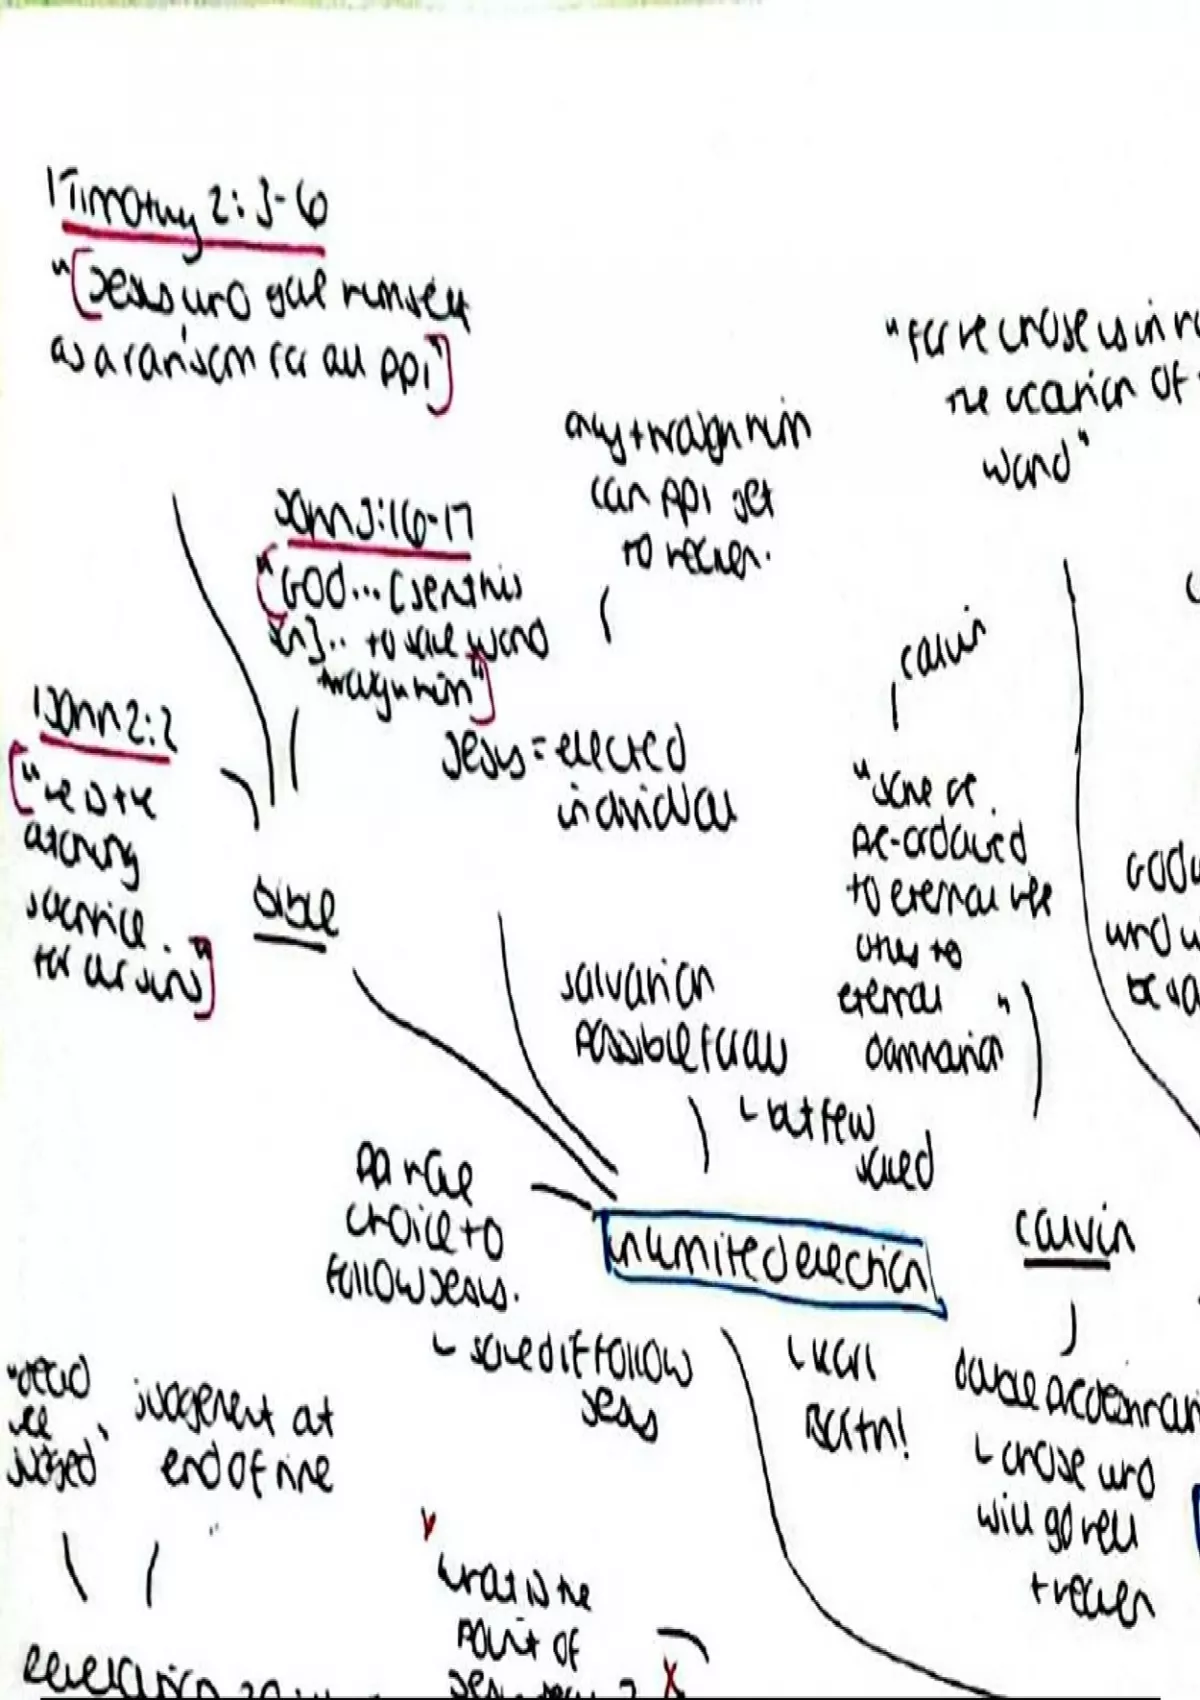 1 Timothy 2:3-6
"[Jesus who gave himself
as a ransom for all ppl"]
John 3:16-17
["God... [sent his
son].. to save world
through him"]
1 John 2:2
["he is the
atoning
sacrifice
for our sins"]
Bible
only through him
can ppl get
to heaven.
Jesus = elected
individual
salvation
possible for all
↳ but few
saved
"for he chose us in
the creation of
world"
Calvin
"some are
pre-ordained
to eternal life
others to
eternal "
damnation
God
who
be
ppl have
choice to
follow Jesus.
↳ saved if follow
Jesus
unlimited election
↳ Karl
Barth!
Calvin
double predestination
↳ chose who
will go hell
+ heaven
"dead
judged"
judgement at
end of time
what is the
point of
Revelation 20